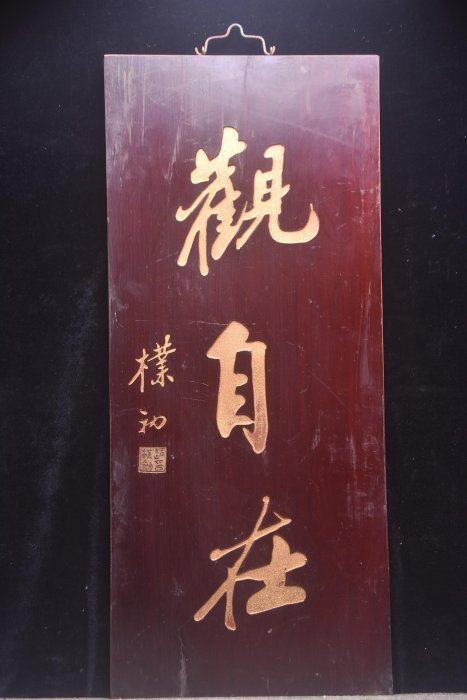 觀自在
樸初